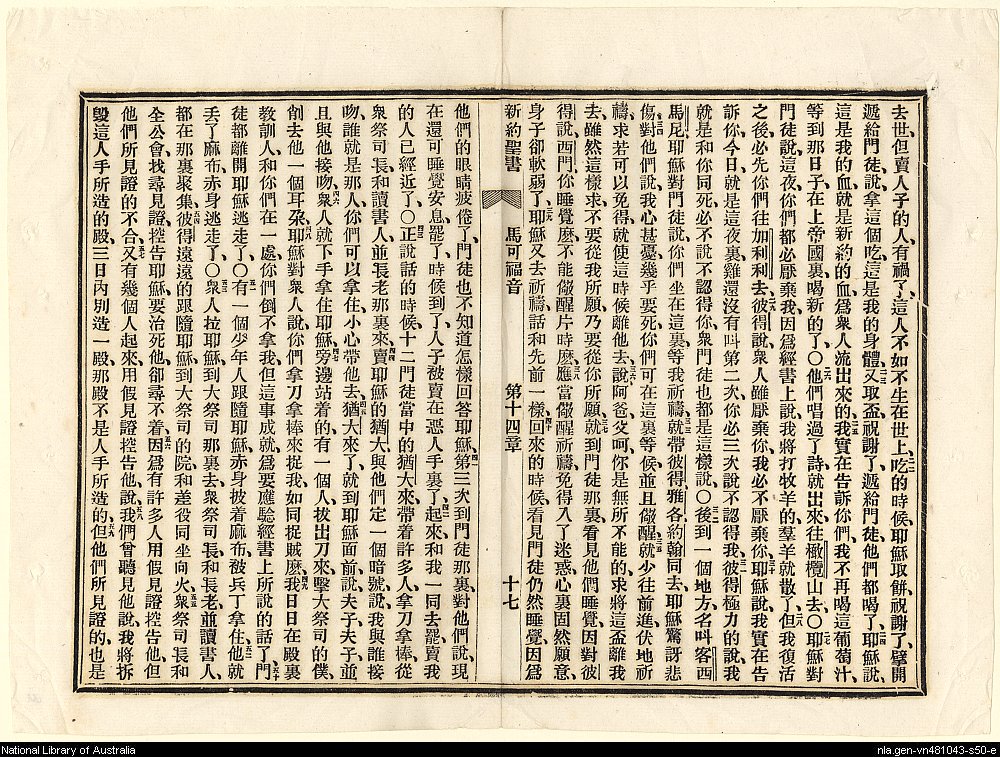 去世、但賣人子的人有禍了、這人不如不生在世上、吃的時候、耶穌取餅祝謝了、擘開
遞給門徒說、拿這個吃、這是我的身體、又取盃祝謝了、遞給門徒、他們都喝了、耶穌說
這是我的血、就是新約的血、爲衆人流出來的、我實在告訴你們、我不再喝這葡萄汁、
等到那日子、在上帝國裏喝新的了○他們唱過了詩、就出來往橄欖山去○耶穌對
門徒說、這夜、你們都必厭棄我、因爲經書上說、我將打牧羊的、羣羊就散了、但我復活
之後、必先你們往加利利去、彼得說、衆人雖厭棄你、我必不厭棄你、耶穌說、我實在告
訴你、今日就是這夜裏、雞還沒有叫第二次、你必三次說不認得我、彼得極力的說、我
就是和你同死、必不說不認得你、衆門徒也都是這樣說○後到一個地方、名叫客西
馬尼、耶穌對門徒說、你們坐在這裏、等我祈禱、就帶彼得雅各約翰同去、耶穌驚訝悲
傷、對他們說、我心甚憂、幾乎要死、你們可在這裏等候、並且儆醒、就少往前進、伏地祈
禱、求若可以免得、就使這時候離他去、說、阿爸父呵、你是無所不能的、求將這盃離我
去、雖然這樣求、不要從我所願、乃要從你所願、就到門徒那裏、看見他們睡覺、因對彼
得說、西門、你睡覺麼、不能儆醒片時麼、應當儆醒祈禱、免得入了迷惑、心裏固然願意、
身子卻軟弱了、耶穌又去祈禱、話和先前一樣、回來的時候、看見門徒仍然睡覺、因爲
新約聖書 馬可福音 第十四章 十七
他們的眼睛疲倦了、門徒也不知道怎樣回答耶穌、第三次到門徒那裏、對他們說、現
在還可睡覺安息、罷了、時候到了、人子被賣在惡人手裏了、起來、和我一同去罷、賣我
的人已經近了○正說話的時候、十二門徒當中的猶大來、帶着許多人、拿刀拿捧、從
衆祭司長和讀書人、並長老那裏來、賣耶穌的猶大、與他們定一個暗號、說、我與誰接
吻、誰就是那人、你們可以拿住、小心帶他去、猶大來了、就到耶穌面前、說、夫子夫子、並
且與他接吻、衆人就下手拿住耶穌、旁邊站着的、有一個人、拔出刀來、擊大祭司的僕、
削去他一個耳朶、耶穌對衆人說、你們拿刀拿捧來捉我、如同捉賊麼、我日日在殿裏
教訓人、和你們在一處、你們倒不拿我、但這事成就、爲要應驗經書上所說的話了、門
徒都離開耶穌逃走了○有一個少年人跟隨耶穌、赤身披着麻布、被兵丁拿住、他就
丢了麻布、赤身逃走了○衆人拉耶穌到大祭司那裏去、衆祭司長和長老、並讀書人、
都在那裏聚集、彼得遠遠的跟隨耶穌、到大祭司的院、和差役同坐向火、衆祭司長和
全公會、找尋見證控告耶穌、要治死他、卻尋不着、因爲有許多人用假見證控告他、但
他們所見證的不合、又有幾個人起來、用假見證控告他、說、我們曾聽見他說、我將拆
毀這人手所造的殿、三日內別造一殿、那殿不是人手所造的、但他們所見證的、也是
National Library of Australia
nla.gen-vn481043-s50-e